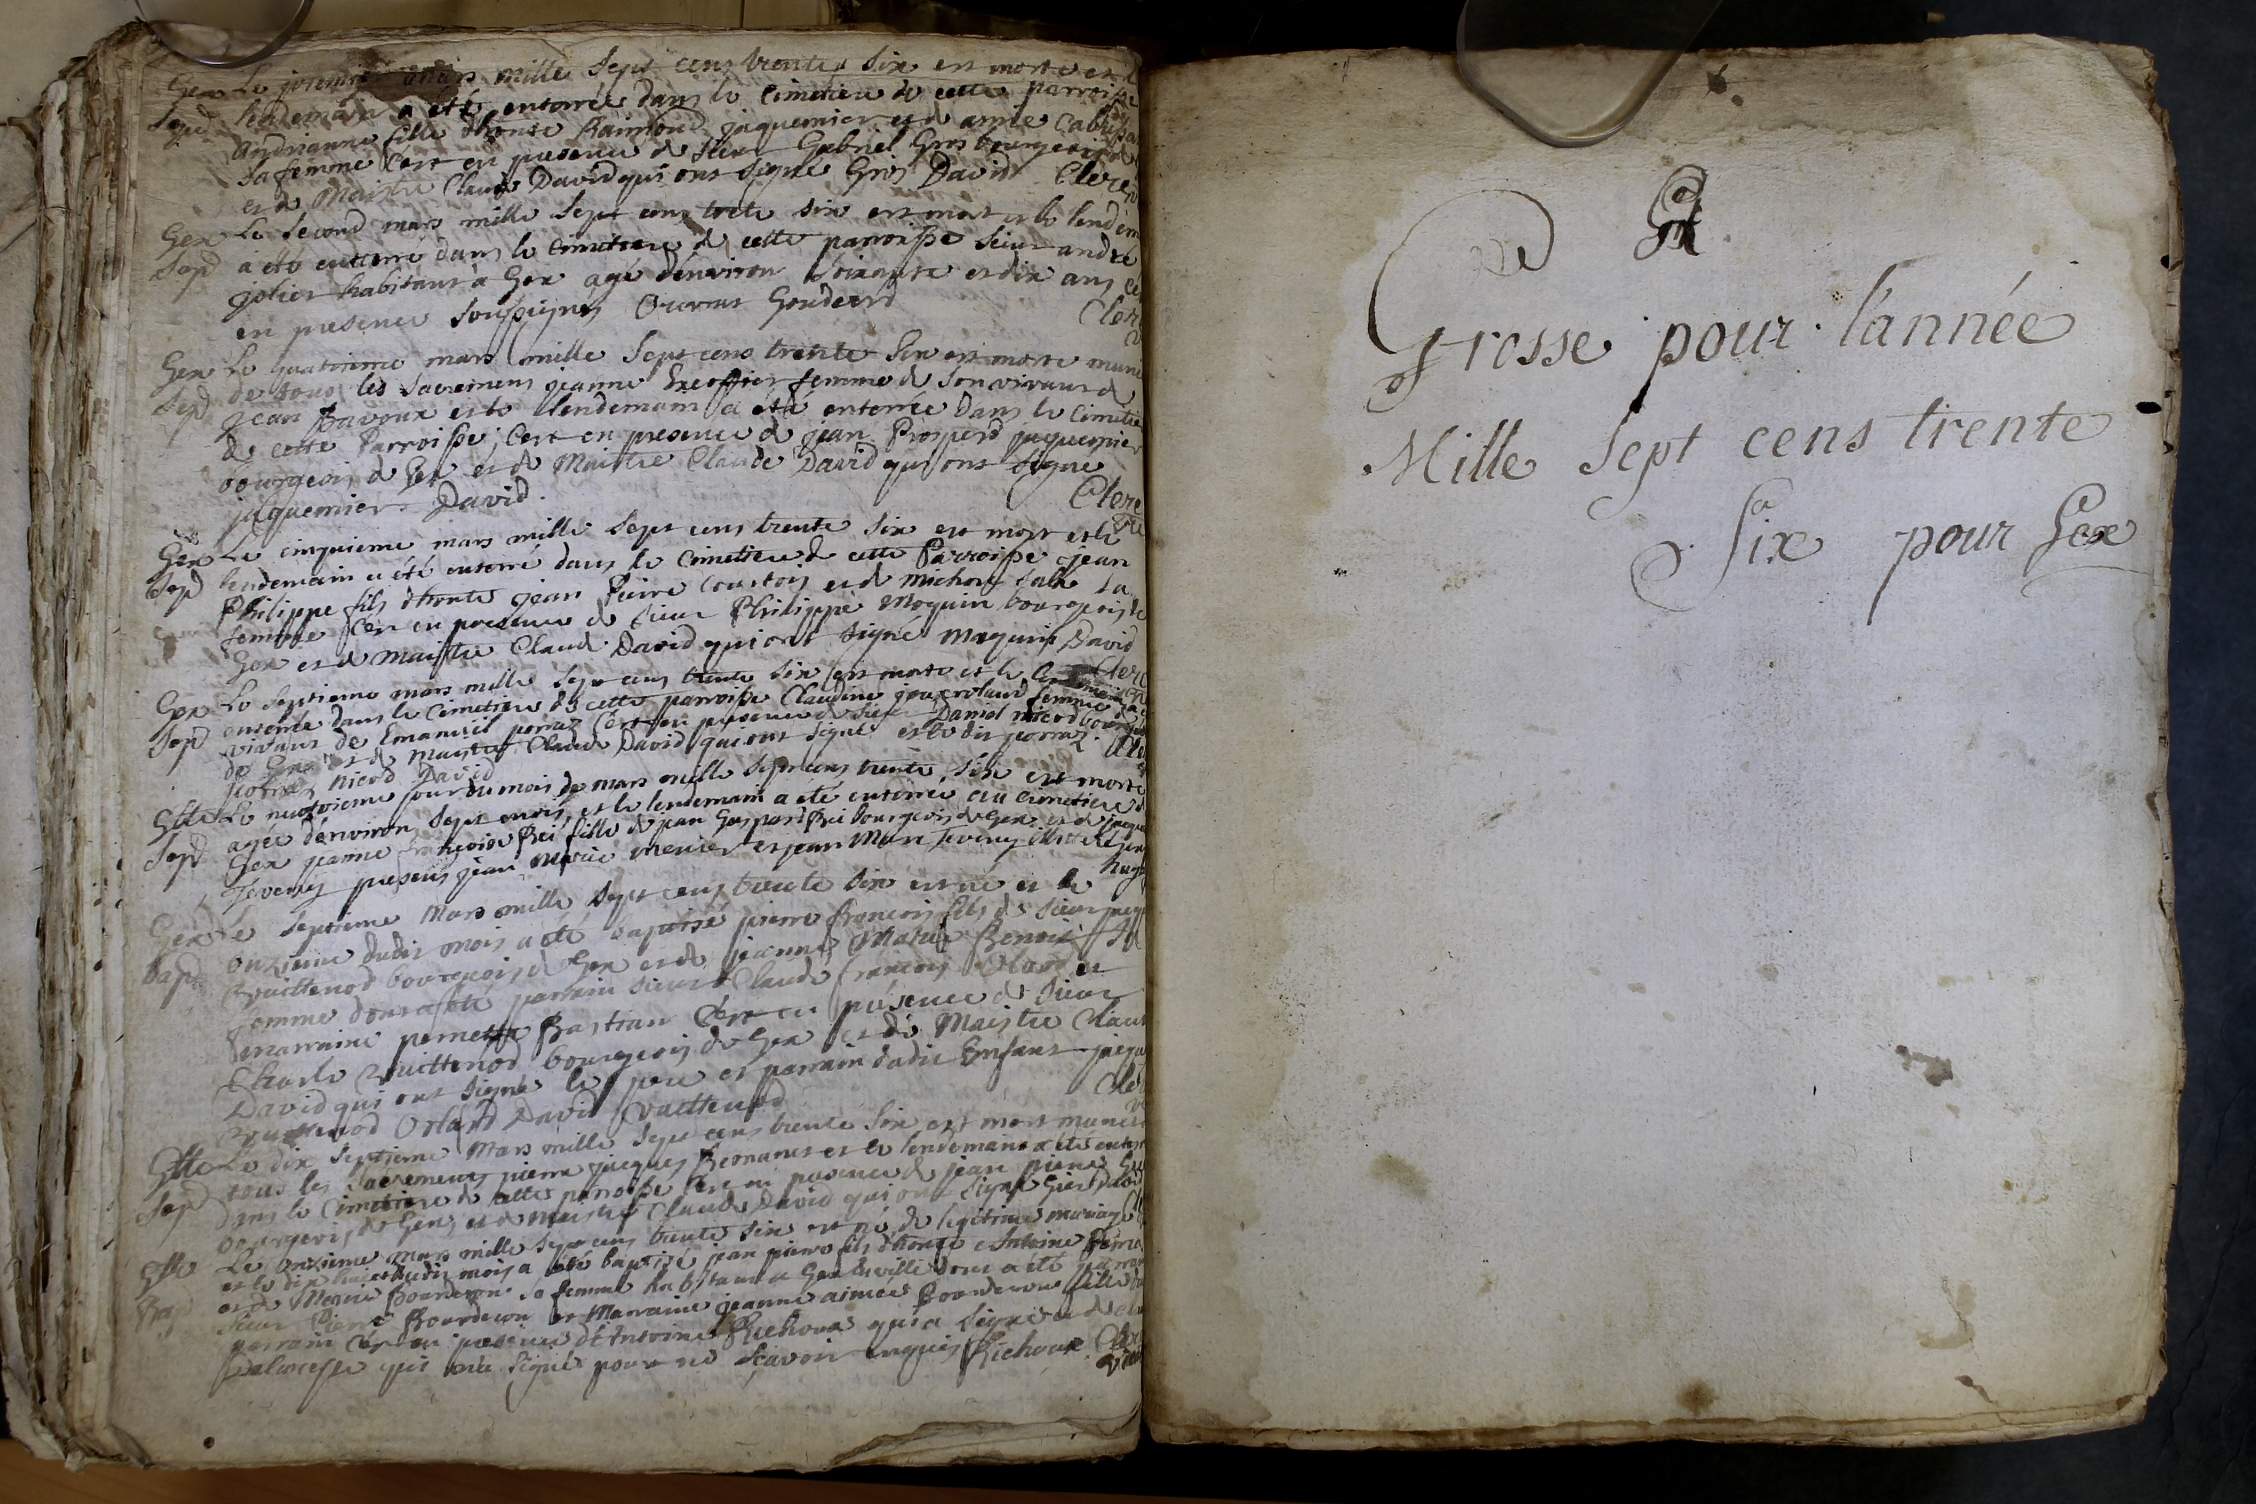 Gex Le premier mars mille Sept cens trente Six est morte et le
Sepd lendemain a eté enterrée dans le Cimetiere de cette parroisse
andrianne fille d'honte Raimond jaquemier et d'anne
sa femme C'est en presence de Sieur Gabriel Gros bourgeois de
et de Maistre Claude David qui ont signé Gros David Clerc
Gex Le Second mars mille Sept cens trete six est mort et le lendem
Sepd a eté enterré dans le cimetiere de cette parroisse Sieur andre
jolier habitant a Gex agé d'environ Soixante et dix ans
en presence Soussignés Gouderd Cler
Gex Le quatrieme mars mille Sept cens trente Six est morte muni
Sepd de tous les Sacremens jeanne femme de Son vivant de
jean Bavoux et le lendemain a eté enterrée Dans le Cimetie
de cette Parroisse, C'est en presence de jean Prosperd jaquemier
bourgeois de Gex et de Maistre Claude David qui ont Signé
jaquemier David Clerc
Gex Le cinquieme mars mille Sept cens trente Six est mort et le
Sepd lendemain a eté enterré dans le Cimetiere de cette Parroisse jean
Philippe fils d'honte jean Peirre Courtois et de Michon sa
femme C'est en presence de Sieur Philippe Moquin bourgeois de
Gex et de maistre Claude David qui ont signé Moquin David
Gex Le Septieme mars mille Sept cens trente Six est morte et le
Sepd enterrée dans le Cimetiere de cette parroisse Claudine femme de
vivant de Emanuil perraz C'est en presence de Sieur Daniel nicod bourgeois
de Gex et de maistre Claude David qui ont signé et le dit perraz
perraz nicod David
Gtte Le neufvieme jour du mois de mars mille Sept cens trente Six est morte
Sepd agée d'environ Sept mois et le lendemain a eté enterrée au Cimetiere de
Gex jeanne françoise Brei fille de jean Gaspard Brei bourgeois de Gex et de jaque
Tevenez presens jean Marie menier et jean Marc Tevenez
Gex Le Septieme Mars mille Sept cens trente Six est né et le
bapt onzieme dudit mois a eté baptisé pierre françois fils de Sieur
Vuittenod bourgeois de Gex et de jeanne Marie Benoit Sa
femme dont a eté parrain Sieur Claude françois Oland et
marraine pernette Bastian C'est en présence de Sieur
Charle Vuittenod bourgeois de Gex et de Maistre Claude
David qui ont signé le pere et parrain dudit Enfant
Vouittenod Orland David Vuittenod
Gtte Le dix Septieme Mars mille Sept cens trente Six est mort muni
Sepd tous les Sacremens pierre jacques Remanet et le lendemain a eté enterré
dans le Cimetiere de cette parroisse C'est en presence de jean pierre
bourgeois de Gex et de Maistre Claude David qui ont Signé
Gtte Le onzieme Mars mille Sept cens trente Six est né de legitime mariage
Bap et le dix dudit mois a eté baptisé jean pierre fils d'honte Antoine
et de Bourderon Sa femme habitant a Gex la ville dont a eté parrain
Sieur Pierre Bourderon et Marraine jeanne aimée Bourderon fille du
parrain C'est en presence d'Antoine Richoux qui a signé
qui n'a Signé pour ne Sçavoir enquis Richoux
6.
Grosse pour l'année
Mille Sept cens trente
Six pour Gex